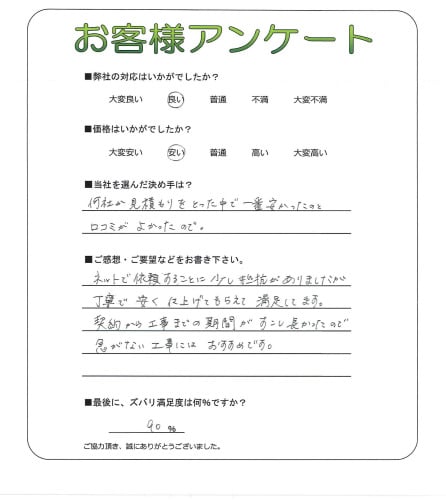 お客様アンケート
■弊社の対応はいかがでしたか？
大変良い 良い 普通 不満 大変不満
■価格はいかがでしたか？
大変安い 安い 普通 高い 大変高い
■当社を選んだ決め手は？
何社か見積もりをとった中で一番安かったのと
口コミがよかったので。
■ご感想・ご要望などをお書き下さい。
ネットで依頼することに少し抵抗がありましたが
丁寧で安く仕上げてもらえて満足してます。
契約から工事までの期間がすこし長かったので
急がない工事にはおすすめです。
■最後に、ズバリ満足度は何％ですか？
90 %
ご協力頂き、誠にありがとうございました。